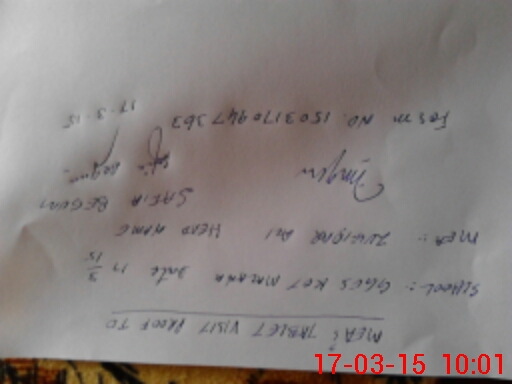 MEA'S TABLET VISIT PROOF TO
SCHOOL:- GGCS KOT MALANA Date 17 3/15
MEA:- ZULFIQAR ALI HEAD NAME
SAFIA BEGUM
Form NO. 1503170947363
17-3-15
17-03-15 10:01